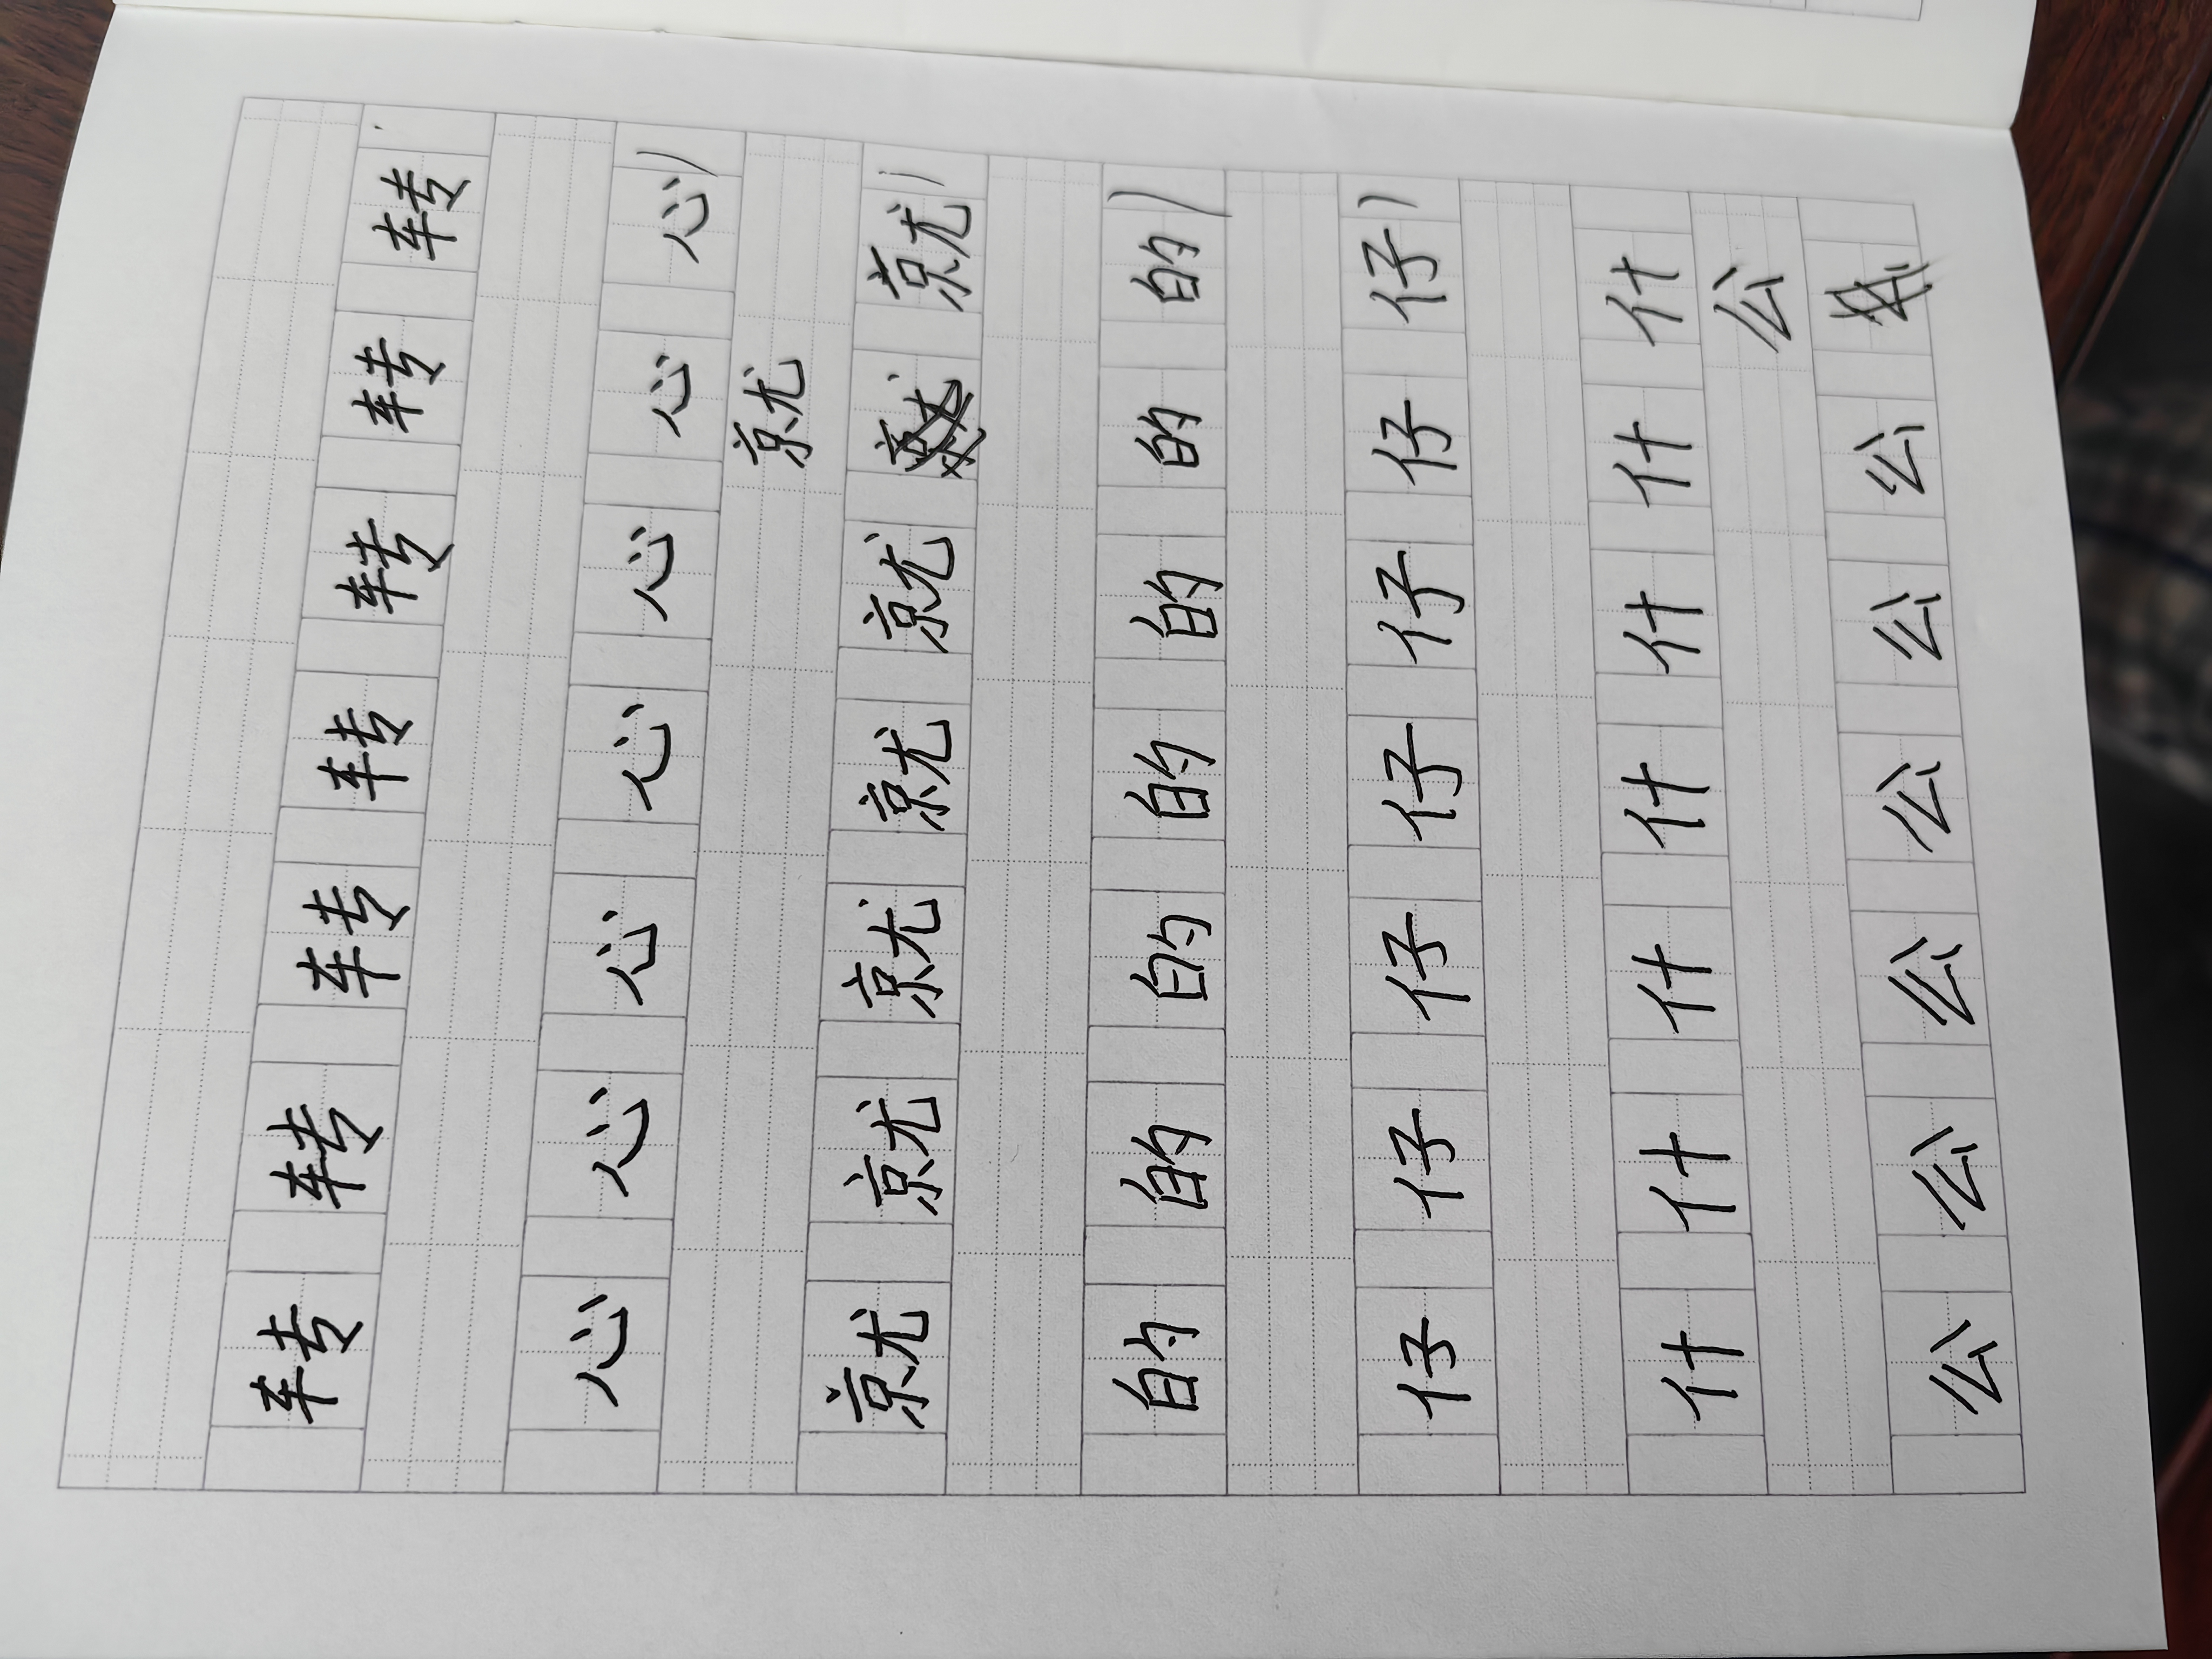 转转转转转转转
心心心心心心心
就
就就就就就就
的的的的的的的
仔仔仔仔仔仔仔
什什什什什什什
公
公公公公公公